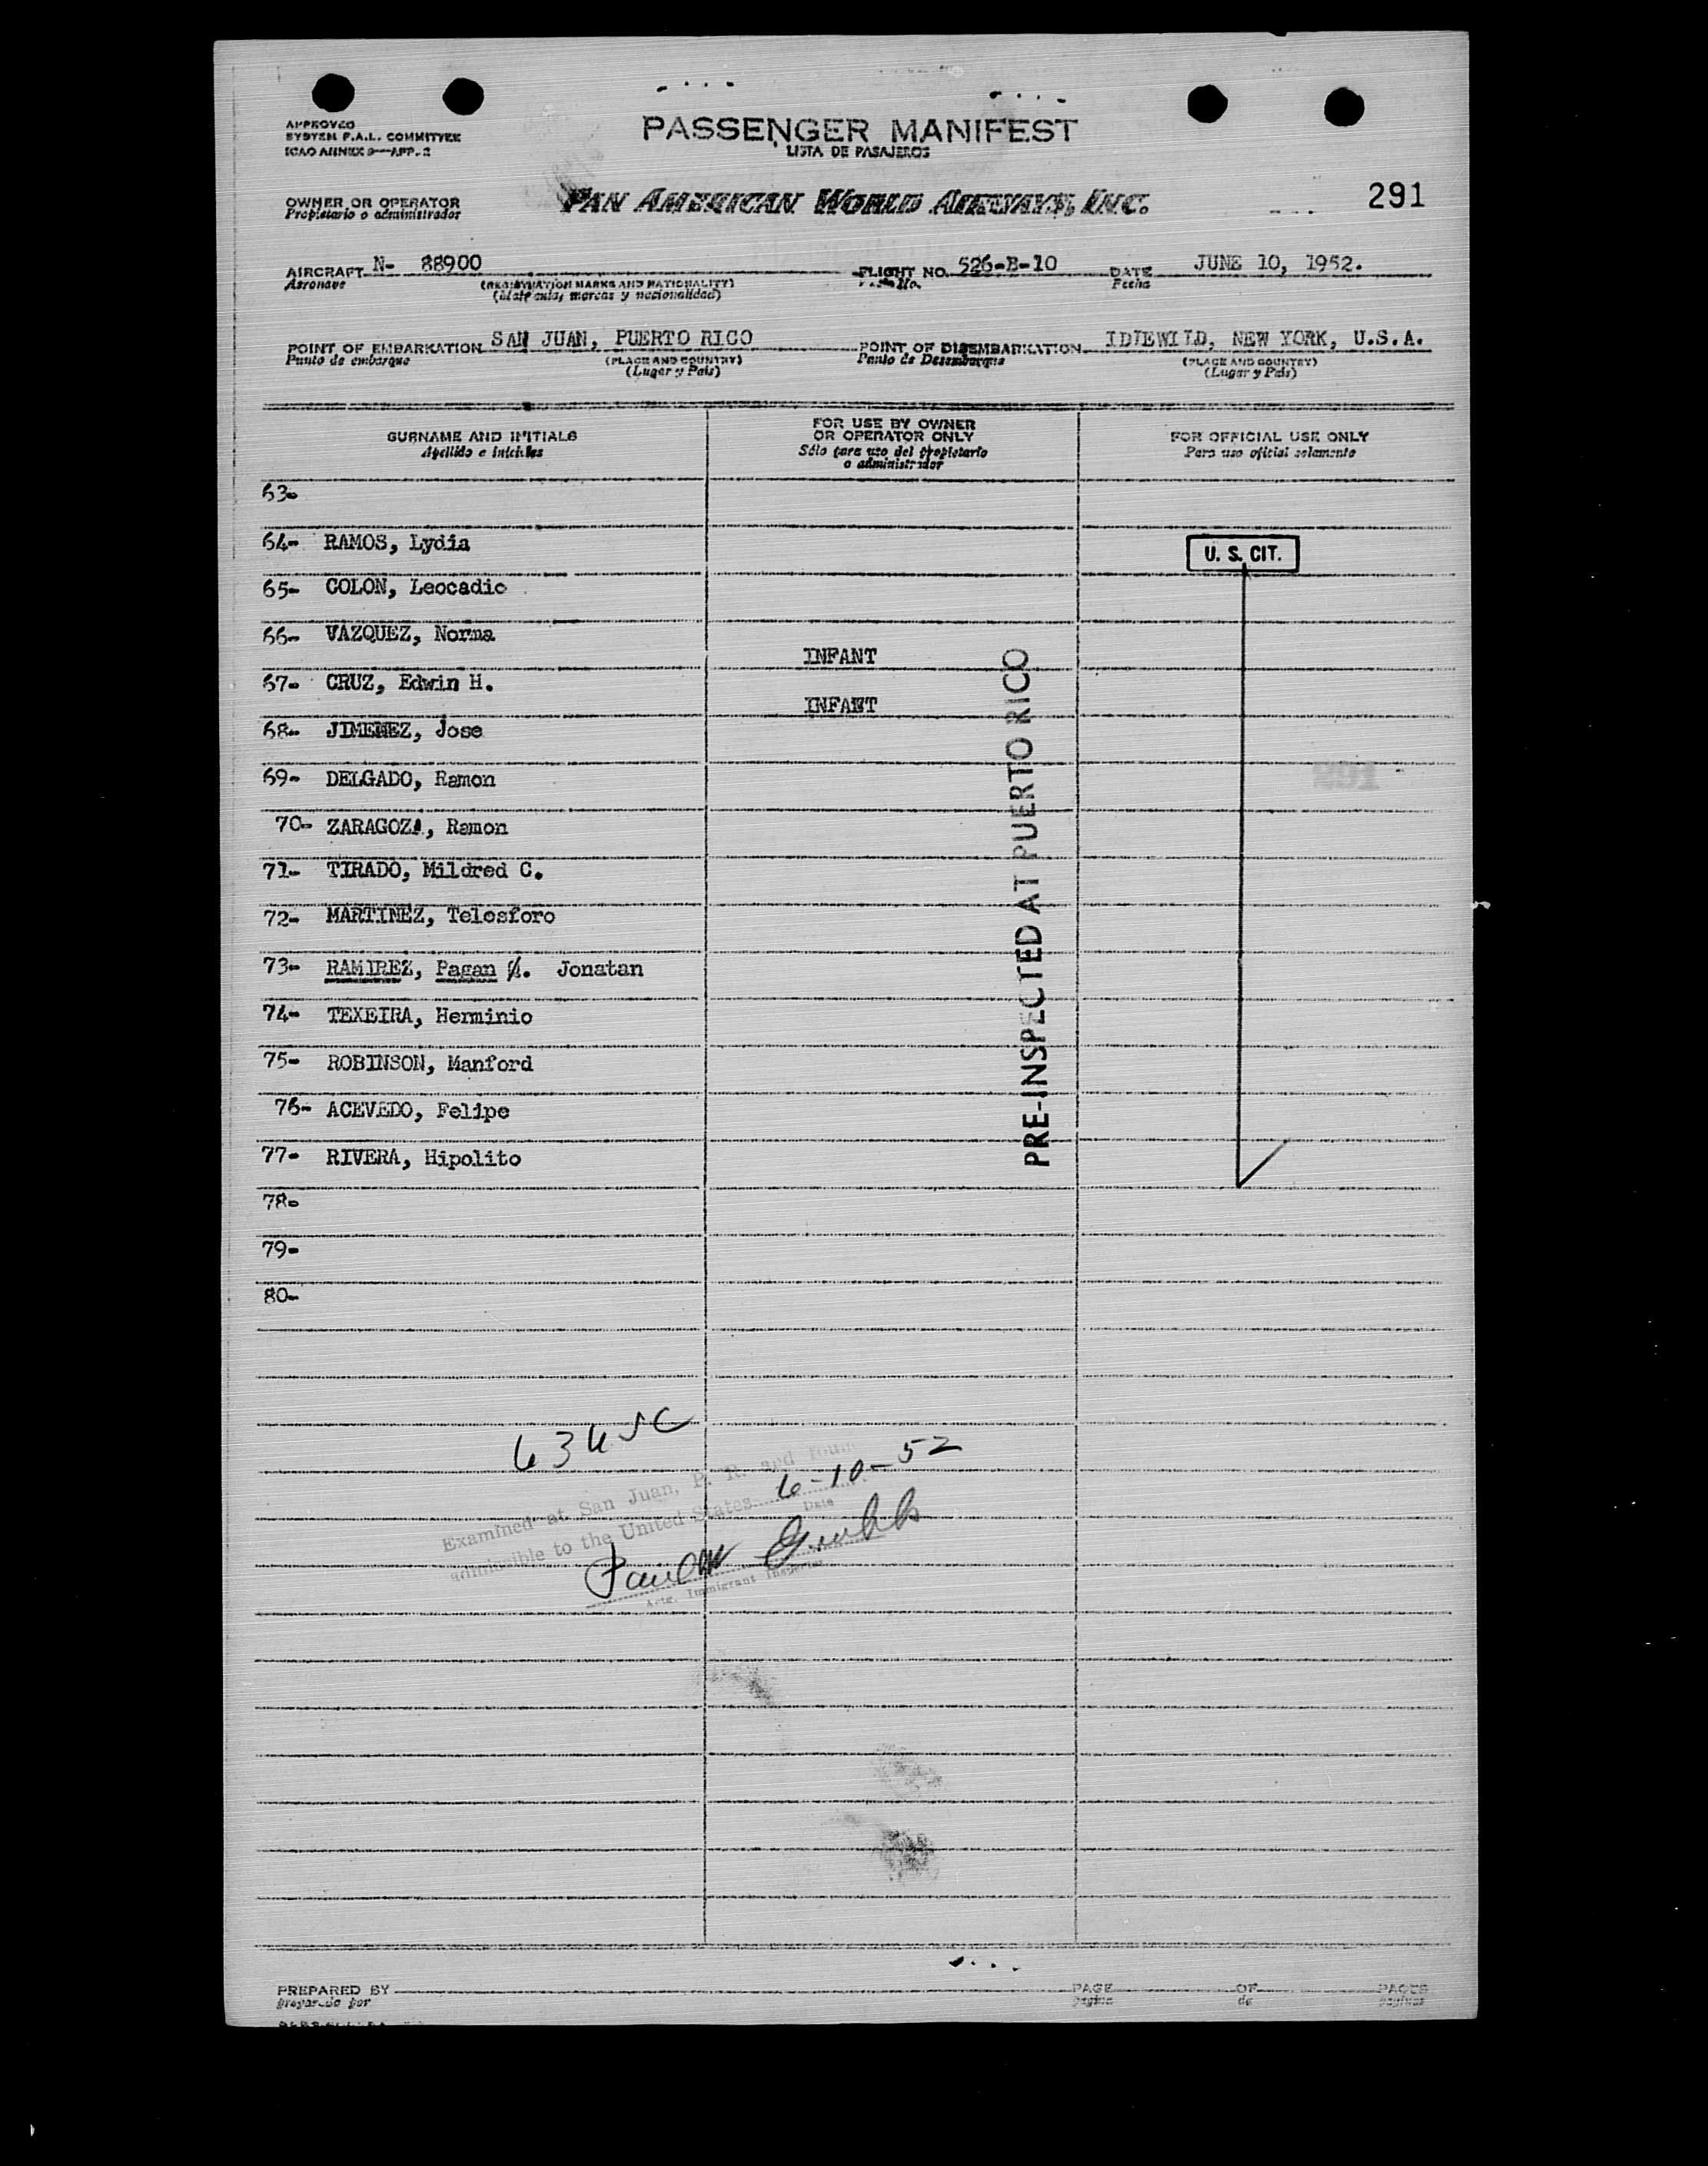 APPROVED
SYSTEM F.A.L. COMMITTEE
ICAO ANNEX 9—APP. 2
PASSENGER MANIFEST
LISTA DE PASAJEROS
OWNER OR OPERATOR
Propietario o administrador
PAN AMERICAN WORLD AIRWAYS, INC.
291
AIRCRAFT N- 88900
Aeronave
(REGISTRATION MARKS AND NATIONALITY)
(Matrícula, marcas y nacionalidad)
FLIGHT NO. 526-B-10
No.
DATE JUNE 10, 1952.
Fecha
POINT OF EMBARKATION SAN JUAN, PUERTO RICO
Punto de embarque
(PLACE AND COUNTRY)
(Lugar y País)
POINT OF DISEMBARKATION IDLEWILD, NEW YORK, U.S.A.
Punto de Desembarque
(PLACE AND COUNTRY)
(Lugar y País)
SURNAME AND INITIALS
Apellido e iniciales
FOR USE BY OWNER
OR OPERATOR ONLY
Sólo para uso del propietario
o administrador
FOR OFFICIAL USE ONLY
Para uso oficial solamente
63-
64- RAMOS, Lydia
U. S. CIT.
65- COLON, Leocadio
66- VAZQUEZ, Norma
INFANT
67- CRUZ, Edwin H.
INFANT
68- JIMENEZ, Jose
69- DELGADO, Ramon
291
70- ZARAGOZA, Ramon
71- TIRADO, Mildred C.
72- MARTINEZ, Telosforo
73- RAMIREZ, Pagan A. Jonatan
74- TEXEIRA, Herminio
75- ROBINSON, Manford
76- ACEVEDO, Felipe
77- RIVERA, Hipolito
PRE-INSPECTED AT PUERTO RICO
78-
79-
80-
Examined at San Juan, P. R. and found
admissible to the United States 6-10-52
Date
Actg. Immigrant Inspector
PREPARED BY
preparado por
PAGE OF PAGES
pagina de paginas